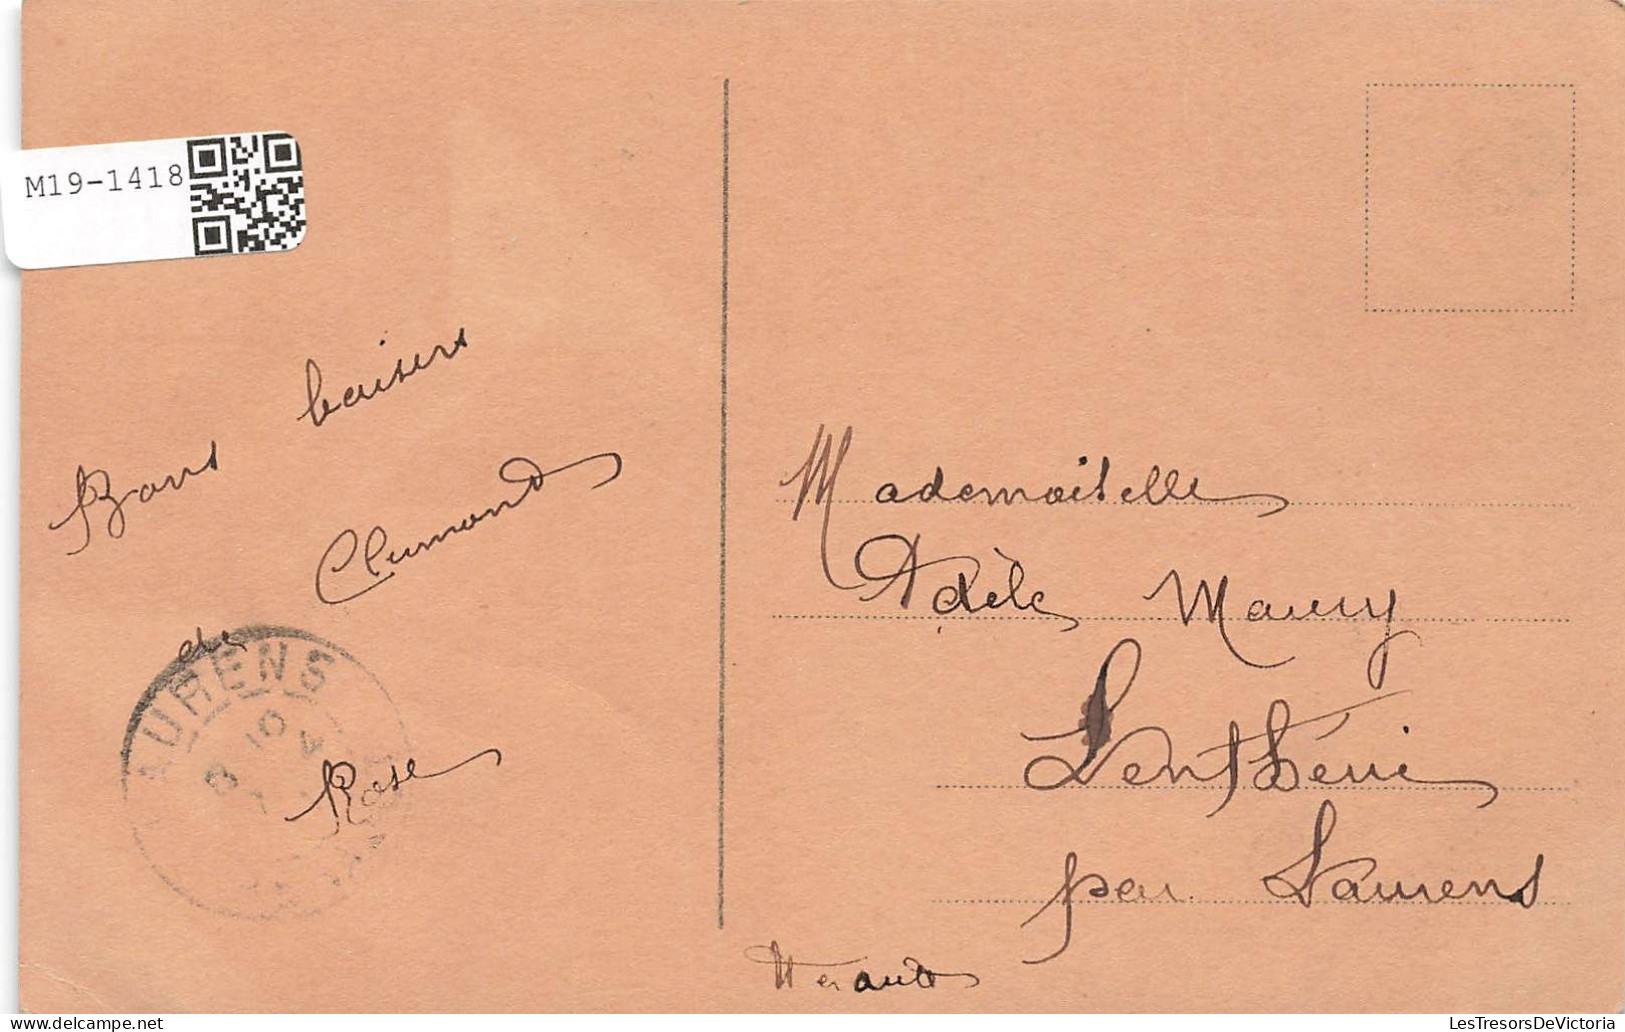 M19-1418
Bons baisers
de Clermond
Rose
LAURENS
10
Mademoiselle
Adèle Maury
Lenthéric
par Laurens
Hérault
LesTresorsDeVictoria